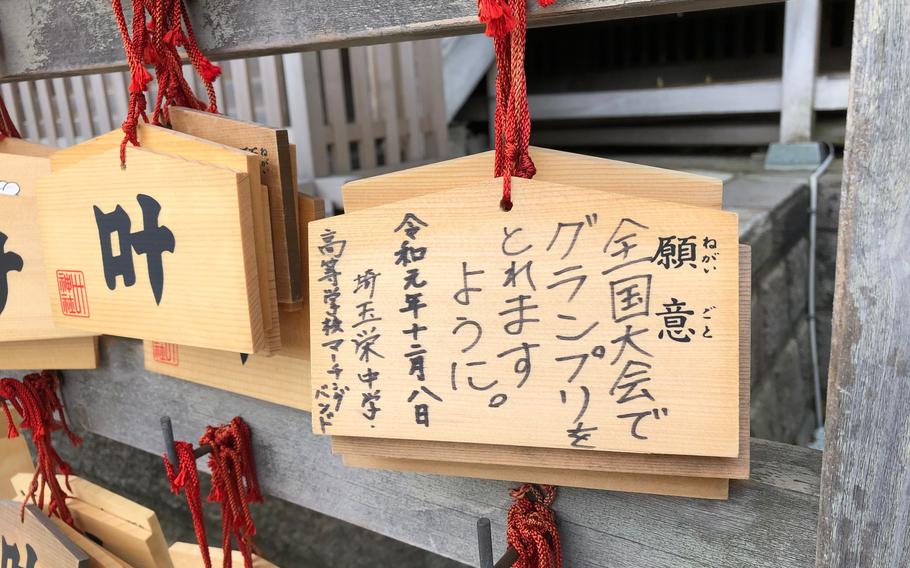 願意
ねがい
ごと
全国大会で
グランプリを
とれます
ように。
令和元年十二月八日
埼玉栄中学・
高等学校マーチングバンド
叶
叶
神社